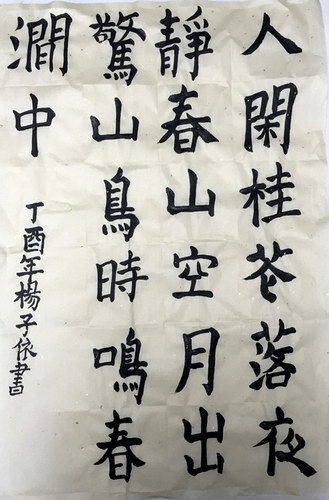 人閑桂花落夜
靜春山空月出
驚山鳥時鳴春
澗中
丁酉年楊子依書